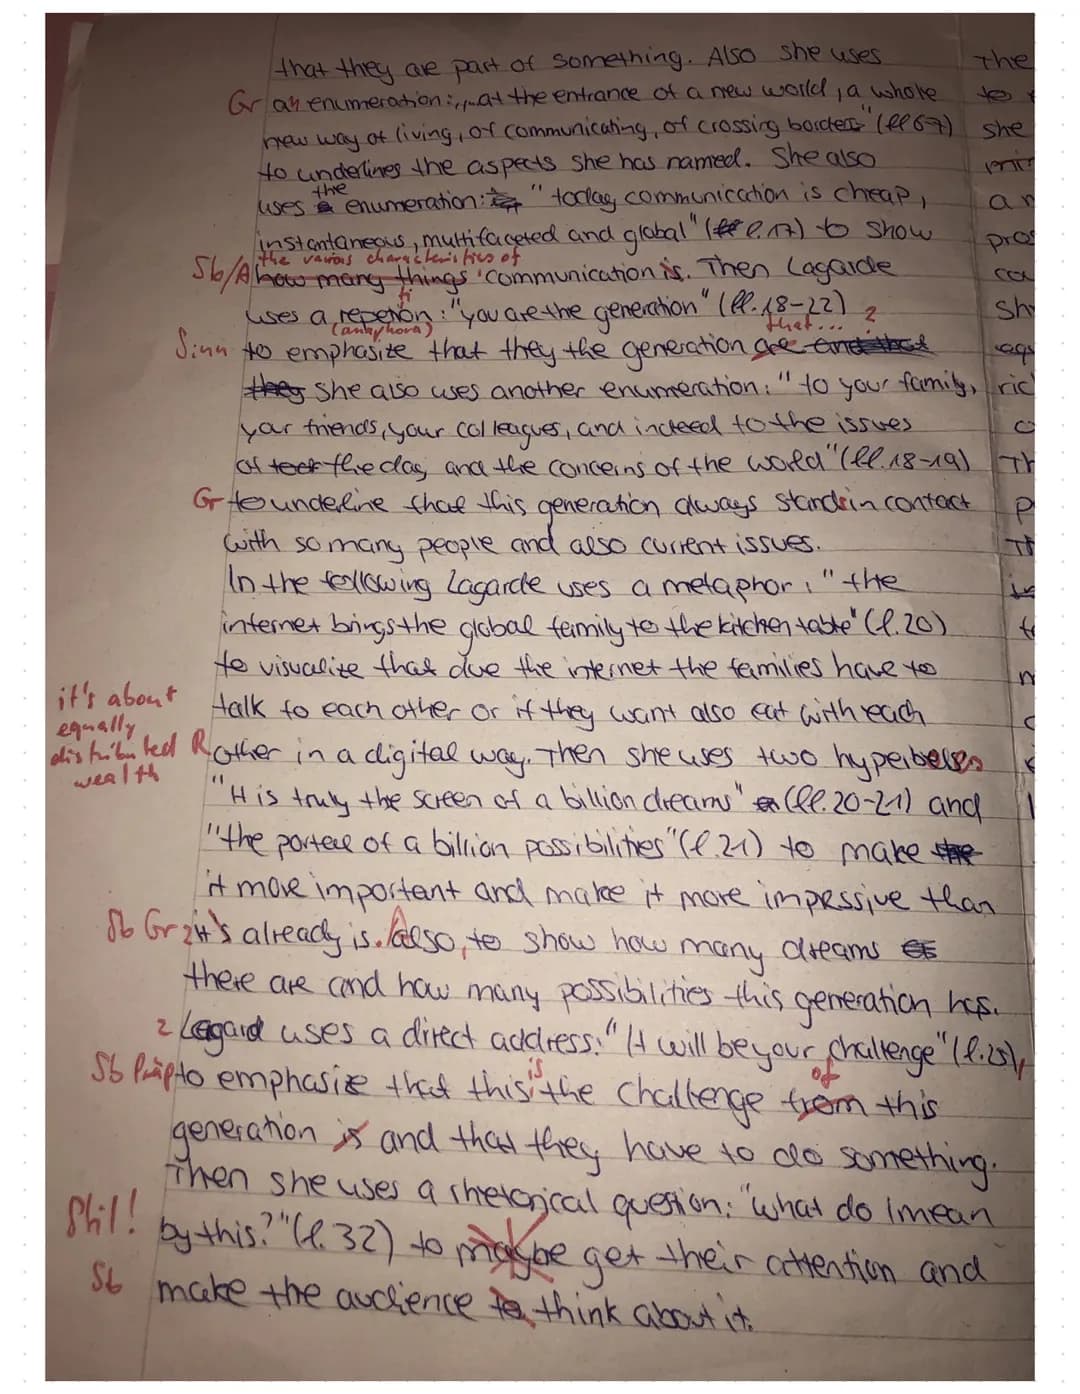 that they are part of something. Also she uses
The
Gr an enumeration: „at the entrance of a new world, a whole
to
new way of living, of communicating, of crossing borders" (ll 67)
she
to underlines the aspects she has named. She also
the
uses a enumeration: "today communication is cheap,
instantaneous, multifaceted and global" (l. 17) to show
the various characteristics of
Sb/A how many things communication is. Then Lagarde
ti
uses a repetion: "you are the generation" (ll. 18-22)
(anaphora)
that... ?
Sinn to emphasize that they the generation are and that
they she also uses another enumeration: "to your family,
your friends, your colleagues, and indeed to the issues
of the day and the concerns of the world" (ll. 18-19)
Gr to underline that this generation always stands in contact
with so many people and also current issues.
In the following Lagarde uses a metaphor: "the
internet brings the global family to the kitchen table" (l. 20)
to visualize that due the internet the families have to
it's about
equally
distributed
wealth
talk to each other or if they want also eat with each
R other in a digital way. Then she uses two hyperboles
"It is truly the screen of a billion dreams" (ll. 20-21) and
"the portal of a billion possibilities" (l. 21) to make the
it more important and make it more impressive than
Sb Gr Z it's already is. Also, to show how many dreams
there are and how many possibilities this generation has.
Z Lagard uses a direct address: "It will be your challenge" (l. 25),
is of
Sb Präp to emphasize that this the challenge from this
generation is and that they have to do something.
Then she uses a rhetorical question: "what do I mean
Stil! by this?" (l. 32) to maybe get their attention and
Sb make the audience to think about it.